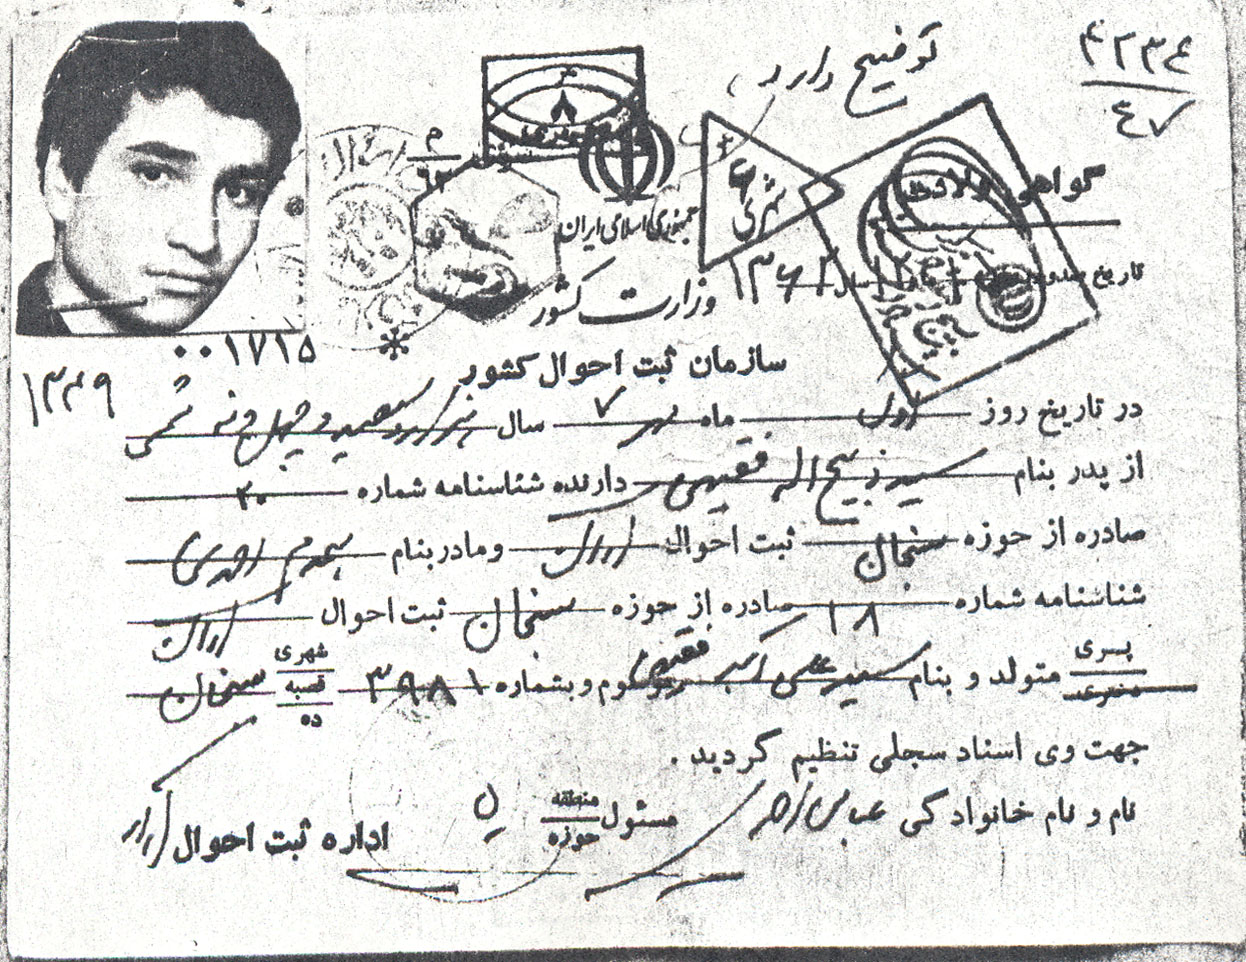 توضیح دارد
۴۲۳۶
۴۷
گواهی ولادت
جمهوری اسلامی ایران
وزارت کشور
تاریخ
سال ۱۳۶۱
شهری
سازمان ثبت احوال کشور
۰۰۱۷۱۵
۱۳۴۹
در تاریخ روز اول ماه مهر ۷ سال هزار و سیصد و چهل و نه شمسی
از پدر بنام سید ذبیح اله فقیهی دارنده شناسنامه شماره ۲۰
صادره از حوزه سنجان ثبت احوال اراک و مادر بنام
شناسنامه شماره ۱۸ صادره از حوزه سنجان ثبت احوال اراک
پسری
دختری
متولد و بنام سید علی اکبر فقیهی موسوم و بشماره ۳۹۸۱
شهری
قصبه
ده
سنجان
جهت وی اسناد سجلی تنظیم گردید .
نام و نام خانوادگی عباس
مسئول
منطقه
حوزه
اداره ثبت احوال اراک